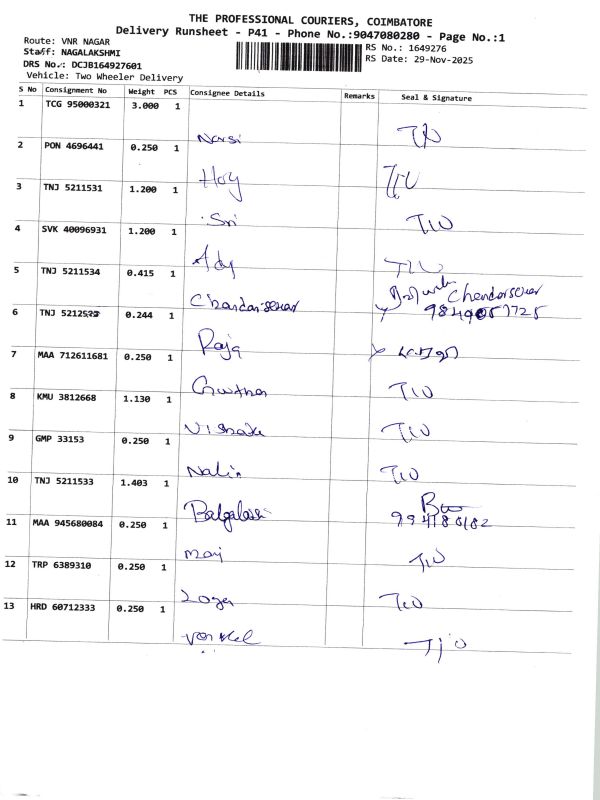 THE PROFESSIONAL COURIERS, COIMBATORE
Delivery Runsheet - P41 - Phone No.:9047080280 - Page No.:1
Route: VNR NAGAR
Staff: NAGALAKSHMI
RS No.: 1649276
DRS No.: DCJB164927601
RS Date: 29-Nov-2025
Vehicle: Two Wheeler Delivery
S No Consignment No Weight PCS Consignee Details Remarks Seal & Signature
1 TCG 95000321 3.000 1 Narsi
2 PON 4696441 0.250 1 Hoy TIU
3 TNJ 5211531 1.200 1 Sri TIU
4 SVK 40096931 1.200 1 Ady TIU
5 TNJ 5211534 0.415 1 Chandarsekar Chandarsekar
6 TNJ 0.244 1 Raja
7 MAA 712611681 0.250 1 TIU
8 KMU 3812668 1.130 1 TIU
9 GMP 33153 0.250 1 Nalin TIU
10 TNJ 5211533 1.403 1
11 MAA 945680084 0.250 1 Mani TIU
12 TRP 6389310 0.250 1 Loga TIU
13 HRD 60712333 0.250 1 TIU